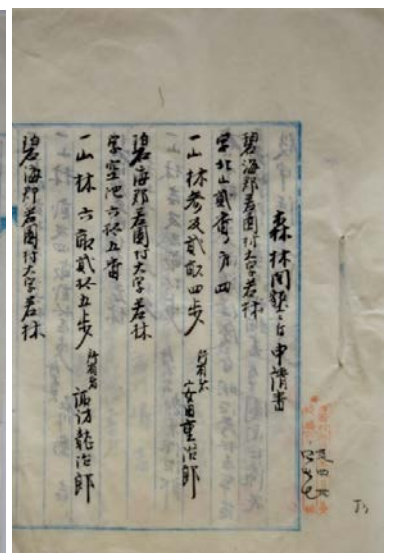 森林開墾ニ付申請書
碧海郡若園村大字若林
字北山貳番ノ四
一山林参反貳畝四歩
所有者 安田重治郎
碧海郡若園村大字若林
字空池六拾五番
一山林六畝貳拾五歩
所有者 諏訪龍治郎
碧海郡若園村大字若林